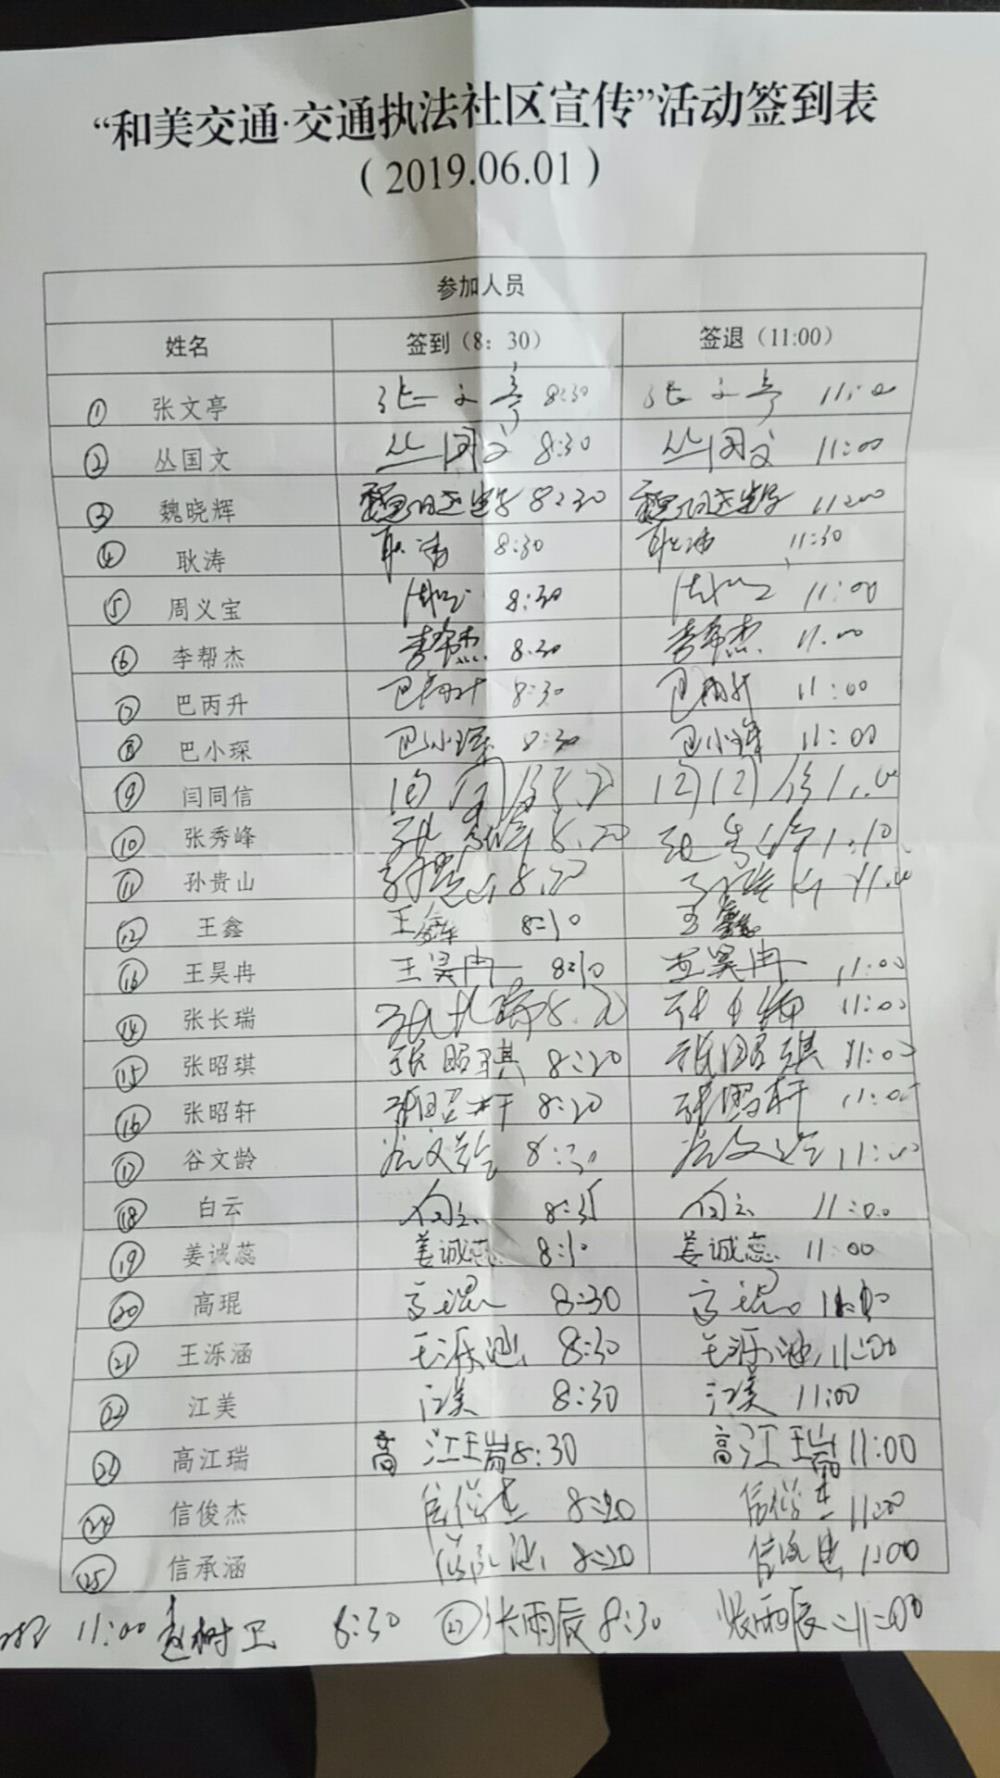 “和美交通·交通执法社区宣传”活动签到表
（2019.06.01）
参加人员
姓名 签到（8：30） 签退（11:00）
① 张文亭 张文亭 8:30 张文亭 11:00
② 丛国文 丛国文 8:30 丛国文 11:00
③ 魏晓辉 8:30 11:00
④ 耿涛 耿涛 8:30 耿涛 11:30
⑤ 周义宝 8:30 11:00
⑥ 李帮杰 李帮杰 8:30 李帮杰 11:00
⑦ 巴丙升 巴丙升 8:30 巴丙升 11:00
⑧ 巴小琛 巴小琛 8:30 巴小琛 11:00
⑨ 闫同信 闫同信 8.20 闫同信 11.00
⑩ 张秀峰 张秀峰 8.20 张秀峰 11.10
⑪ 孙贵山 孙贵山 8.20 孙贵山 11.00
⑫ 王鑫 王鑫 8:10 王鑫
⑬ 王昊冉 王昊冉 8:10 王昊冉 11:00
⑭ 张长瑞 张长瑞 8.20 张长瑞 11:00
⑮ 张昭琪 张昭琪 8:20 张昭琪 11:00
⑯ 张昭轩 张昭轩 8:20 张昭轩 11:00
⑰ 谷文龄 谷文龄 8:30 谷文龄 11:00
⑱ 白云 白云 8:35 白云 11:00
⑲ 姜诚蕊 姜诚蕊 8:10 姜诚蕊 11:00
⑳ 高琨 高琨 8:30 高琨 11:00
㉑ 王泺涵 王泺涵 8:30 王泺涵 11:00
㉒ 江美 江美 8:30 江美 11:00
㉓ 高江瑞 高江瑞 8:30 高江瑞 11:00
㉔ 信俊杰 信俊杰 8:20 信俊杰 11:00
㉕ 信承涵 信承涵 8:20 信承涵 11:00
11:00 赵树卫 8:30 ㉗ 张雨辰 8:30 张雨辰 11:00